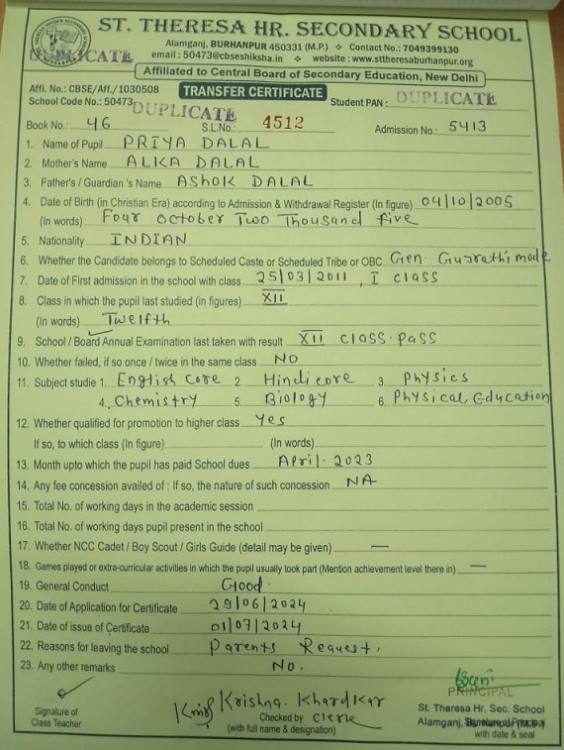 ST. THERESA HR. SECONDARY SCHOOL
Alamganj, BURHANPUR 450331 (M.P.) ❖ Contact No.: 7049399130
DUPLICATE
email : 50473@cbseshiksha.in ❖ website : www.sttheresaburhanpur.org
Affiliated to Central Board of Secondary Education, New Delhi
Affi. No.: CBSE/Aff./1030508 TRANSFER CERTIFICATE Student PAN : DUPLICATE
School Code No.: 50473 DUPLICATE
Book No.: 46 S.L.No.: 4512 Admission No.: 5413
1. Name of Pupil PRIYA DALAL
2. Mother's Name ALKA DALAL
3. Father's / Guardian 's Name ASHOK DALAL
4. Date of Birth (in Christian Era) according to Admission & Withdrawal Register (In figure) 04/10/2005
(In words) Four october Two Thousand five
5. Nationality INDIAN
6. Whether the Candidate belongs to Scheduled Caste or Scheduled Tribe or OBC Gen Gujrathi mode
7. Date of First admission in the school with class 25/03/2011, I class
8. Class in which the pupil last studied (in figures) XII
(In words) Twelfth
9. School / Board Annual Examination last taken with result XII class. pass
10. Whether failed, if so once / twice in the same class NO
11. Subject studie 1. English core 2 Hindi core 3. Physics
4. Chemistry 5. Biology 6. Physical Education
12. Whether qualified for promotion to higher class Yes
If so, to which class (In figure) (In words)
13. Month upto which the pupil has paid School dues April. 2023
14. Any fee concession availed of : If so, the nature of such concession NA
15. Total No. of working days in the academic session
16. Total No. of working days pupil present in the school
17. Whether NCC Cadet / Boy Scout / Girls Guide (detail may be given) —
18. Games played or extra-curricular activities in which the pupil usually took part (Mention achievement level there in) —
19. General Conduct Good
20. Date of Application for Certificate 29/06/2024
21. Date of issue of Certificate 01/07/2024
22. Reasons for leaving the school Parents Request.
23. Any other remarks No.
PRINCIPAL
Krishna. Khardkar
St. Theresa Hr. Sec. School
Signature of Checked by clerk Alamganj, Burhanpur (M.P.)
Class Teacher (with full name & designation) with date & seal